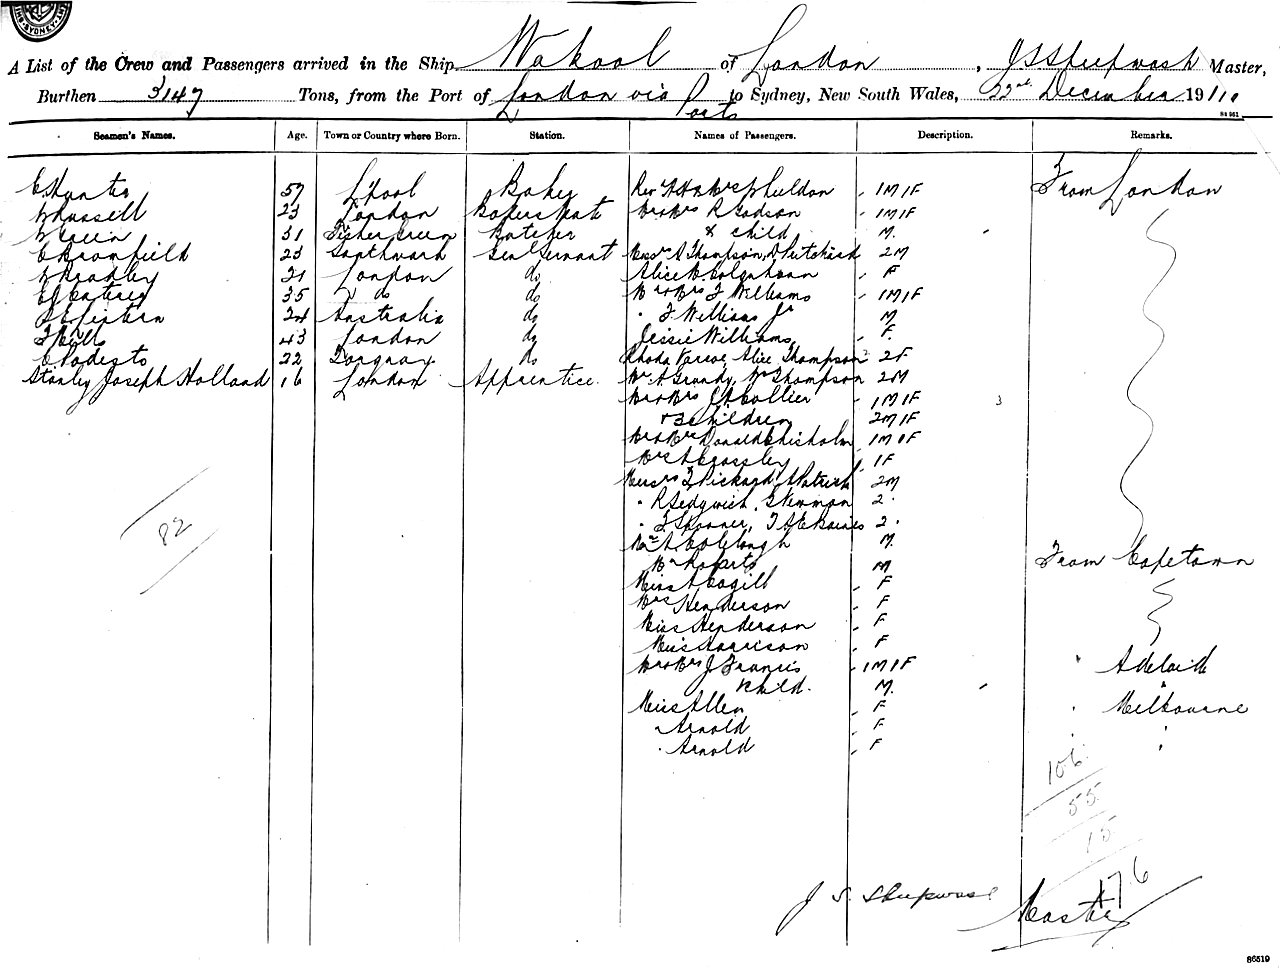 SYDNEY
A List of the Crew and Passengers arrived in the Ship Wakool of London, J S Sheepwash Master,
Burthen 3147 Tons, from the Port of London via Ports to Sydney, New South Wales, 22nd December 1911.
84961
Seamen's Names. Age. Town or Country where Born. Station. Names of Passengers. Description. Remarks.
E Hunter 57 L'pool Baker Revd & Mrs Sheldon 1M 1F From London
W Russell 23 London Bakers Mate Mr & Mrs R Godson 1M 1F
W Green 31 Butcher & child M.
C Bromfield 23 Southwark Genl Servant Messrs A Thompson, Pritchard 2M
W Bradley 21 London do Alice M. Colquhoun F
35 do do Mr & Mrs F Williams 1M 1F
24 Australia do " F Williams Jr M
F Hills 43 London do Jessie Williams F.
C Podesta 22 Torquay do Rhoda Varcoe Alice Thompson 2F
Stanley Joseph Holland 16 London Apprentice. Mr A Grundy, Wm Thompson 2M
Mr & Mrs J A Collier 1M 1F 3
& 3 children 2M 1F
Mr & Mrs Donald Chisholm 1M 1F
Mrs A Crossley 1F
Messrs F Pickard, A Patrick 2M
" R Sedgwick, G Newman 2 "
" F Spooner, T A E Baines 2 "
82
Mr A Colclough M.
Mr Roberts M From Capetown
Miss A Cogill F
Mrs Henderson F
Miss Henderson F
Miss Harrison F
Mr & Mrs J Francis 1M 1F " Adelaide
& child. M. "
Miss Allen F " Melbourne
" Arnold F " "
" Arnold F
106
55
15
176
J S Sheepwash Master
86519